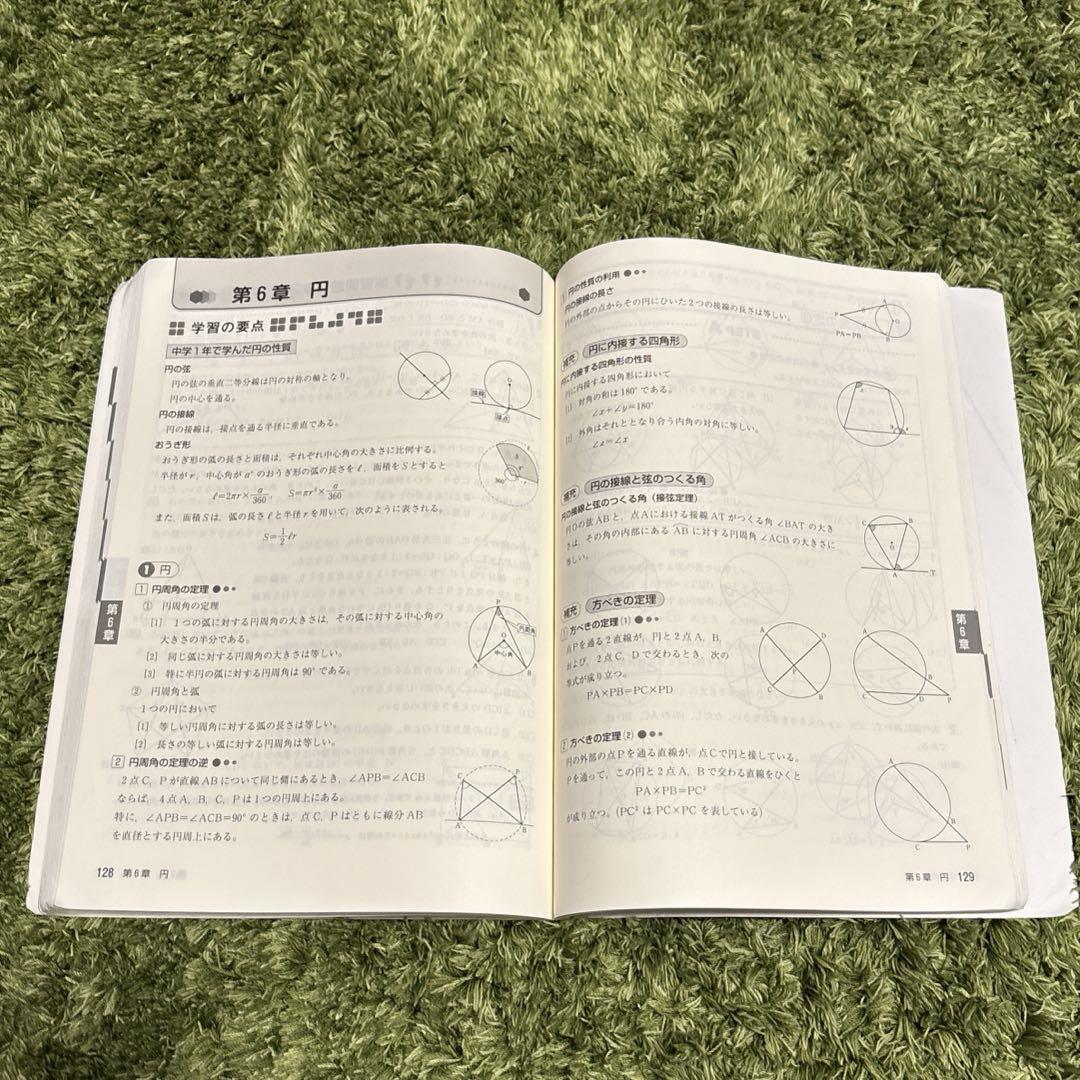 第6章 円
学習の要点
中学1年で学んだ円の性質
円の弦
円の弦の垂直二等分線は円の対称の軸となり，
円の中心を通る。
円の接線
円の接線は，接点を通る半径に垂直である。
おうぎ形
おうぎ形の弧の長さと面積は，それぞれ中心角の大きさに比例する。
半径が r，中心角が a° のおうぎ形の弧の長さを ℓ，面積を S とすると
ℓ=2πr×a/360， S=πr²×a/360
また，面積 S は，弧の長さ ℓ と半径 r を用いて，次のように表される。
S=1/2 ℓr
O
接線
接点
360°
1 円
1 円周角の定理 ●●●
① 円周角の定理
[1] 1つの弧に対する円周角の大きさは，その弧に対する中心角の
大きさの半分である。
[2] 同じ弧に対する円周角の大きさは等しい。
[3] 特に半円の弧に対する円周角は 90° である。
② 円周角と弧
1つの円において
[1] 等しい円周角に対する弧の長さは等しい。
[2] 長さの等しい弧に対する円周角は等しい。
P
円周角
O
中心角
A
B
2 円周角の定理の逆 ●●●
2点 C，P が直線 AB について同じ側にあるとき，∠APB=∠ACB
ならば，4点 A，B，C，P は1つの円周上にある。
特に，∠APB=∠ACB=90° のときは，点 C，P はともに線分 AB
を直径とする円周上にある。
C
P
A
B
第6章
128 第6章 円
円の性質の利用 ●●●
円の接線の長さ
円の外部の点からその円にひいた2つの接線の長さは等しい。
P
A
O
B
PA=PB
補充 円に内接する四角形
円に内接する四角形の性質
円に内接する四角形において
[1] 対角の和は 180° である。
∠x+∠y=180°
[2] 外角はそれととなり合う内角の対角に等しい。
∠z=∠x
補充 円の接線と弦のつくる角
円の接線と弦のつくる角（接弦定理）
円 O の弦 AB と，点 A における接線 AT がつくる角 ∠BAT の大き
さは，その角の内部にある AB に対する円周角 ∠ACB の大きさに
等しい。
C
B
O
A
T
補充 方べきの定理
1 方べきの定理 (1) ●●●
点 P を通る2直線が，円と2点 A，B
および，2点 C，D で交わるとき，次の
等式が成り立つ。
PA×PB=PC×PD
A
D
P
C
B
A
B
C
D
P
2 方べきの定理 (2) ●●●
円の外部の点 P を通る直線が，点 C で円と接している。
P を通って，この円と2点 A，B で交わる直線をひくと
PA×PB=PC²
が成り立つ。(PC² は PC×PC を表している)
A
B
C
P
第6章
第6章 円 129